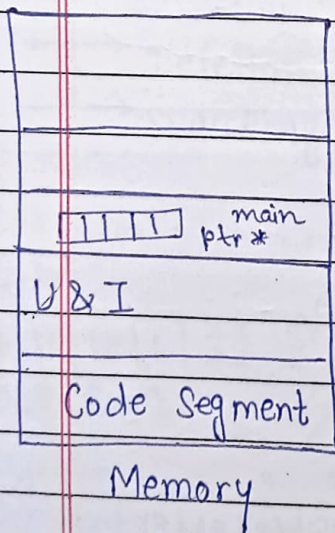 main
ptr *
U & I
Code Segment
Memory